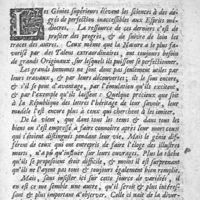 Les Génies supérieurs élèvent les sciences à des de-
grés de perfection inaccessibles aux Esprits mé-
diocres. La ressource de ces derniers est de
profiter des progrès, & de suivre de loin les
traces des autres. Ceux même que la Nature a le plus fa-
vorisé par des Talens extraordinaires, ont toujours besoin
de grands Originaux, sur lesquels ils puissent se perfectionner.
Les grands hommes ne sont donc pas seulement utiles par
eux-mêmes, & par leurs découvertes; ils le sont encore,
& s'il se peut d'avantage, par l'émulation qu'ils excitent,
& par l'exemple qu'ils laissent. Quelque précieux que soit
à la République des lettres l'héritage de leur savoir, leur
modèle l'est encore plus, à cause des efforts qu'on fait pour
les imiter.
De là vient, que dans tous les tems & dans tous les
lieux on s'est empressé à faire connoître après leur mort ceux
qui s'étoient distingués pendant leur vie. Mais le génie diffé-
rent de ceux qui ont entrepris de faire l'éloge des illustres
morts, a influé nécessairement sur leurs ouvrages. Plus les choses
qu'ils se proposoient étoit difficile, & moins il est surprenant
qu'ils ne l'ayent pas tous & toujours également bien remplie.
Mais, sans insister ici sur ces sources de variétés, il
en est ce me semble une autre, qu'il seroit & plus intéres-
sant & plus important d'observer. Celle là naît de la diver-